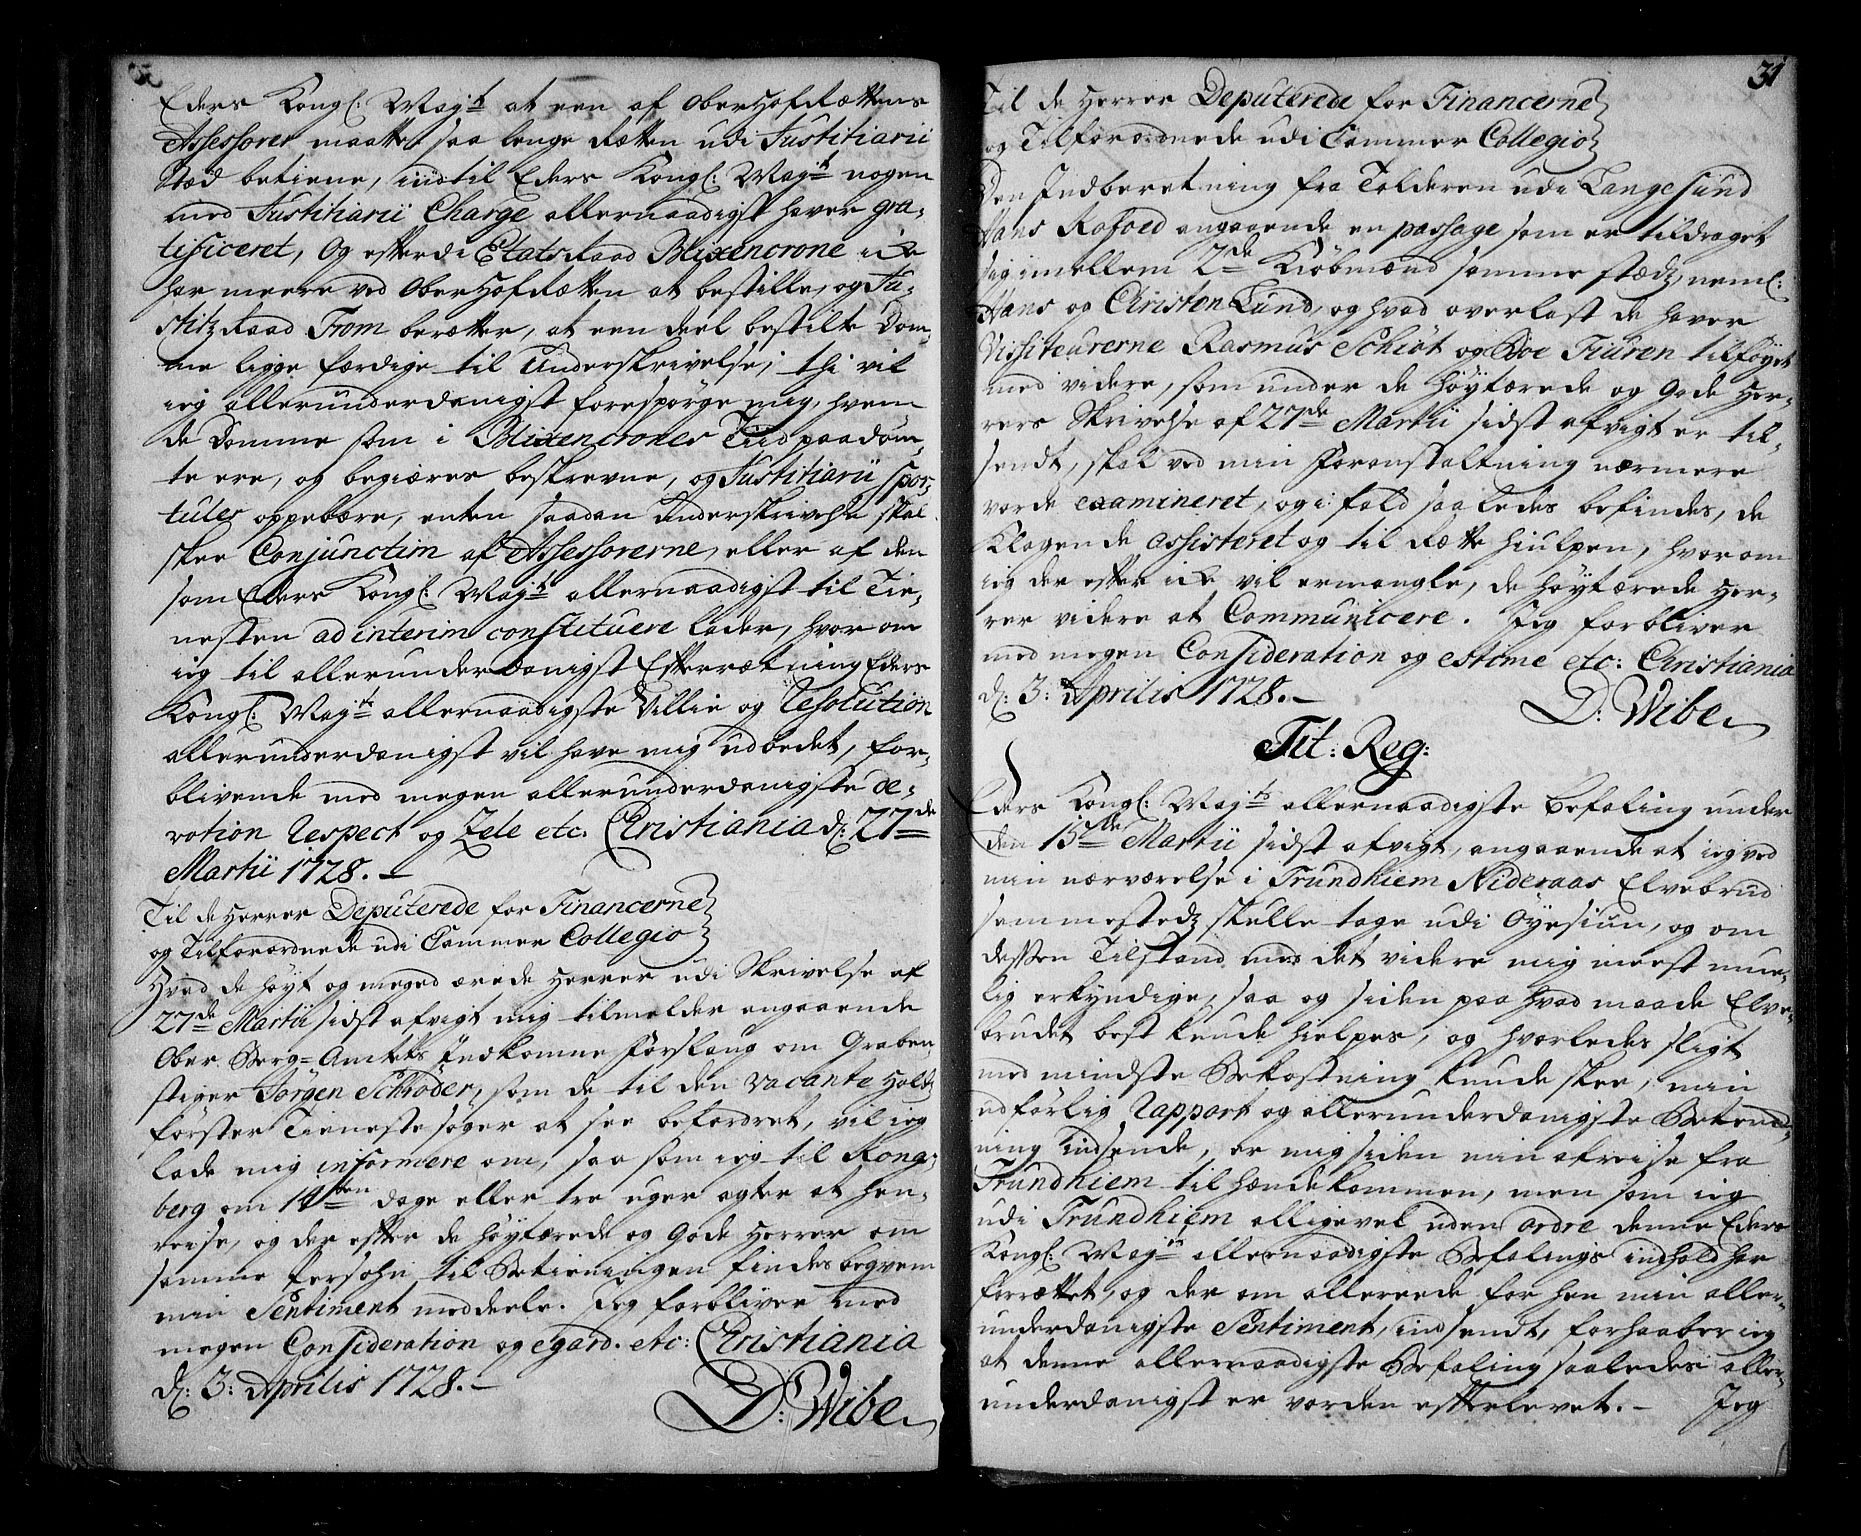 Eders Kongl: Maj:t at een af OberHofRættens
Assessorer maatte saa lenge Retten udi Justitiarii
Stæd betiene, indtil Eders Kongl: Maj:t nogen
med Justitiarii Charge allernaadigst haver gra-
tificeret, Og efterdi EtatsRaad Blixencrone icke
har meere ved OberHofRætten at bestille, og Ju-
stitzRaad From beretter, at een deel bestilte Dom-
me ligge færdige til Underskrivelse, thi vil
ieg allerunderdanigst forespørge mig, hvem
de Domme som i Blixencrones Tiid paadøm-
te ere, og begiæres beskrevne, og Justitiarii Spor-
tuler oppebære, enten saadan Underskrivelse skal
skee Conjunctim af Assessorerne, eller af den
som Eders Kongl: Maj:t allernaadigst til Tie-
nesten ad interim constituere lader, hvor om
ieg til allerunderdanigst Efterretning Eders
Kongl: Maj:ts allernaadigste Villie og Resolution
allerunderdanigst vil have mig udbedet, for-
blivende med megen allerunderdanigste de-
votion Respect og Zele etc. Christiania d: 27de
Martii 1728.—
Til de Herrer Deputerede for Financerne
og Tilforordnede udi Cammer Collegio
Hvad de høyt og meged ærede Herrer udi Skrivelse af
27de Martii sidst afvigt mig tilmelder angaaende
Ober Berg-Amtets Indkomne Forslaug om Graben-
stiger Jørgen Schrøder, som de til den vacante Holt-
förster Tieneste søger at see befordret, vil ieg
lade mig informere om, saa som ieg til Kong-
berg om 14ten dage eller tre uger agter at hen-
reise, og der efter de Høytærede og Gode Herrer om
samme Persohn til Betieningen findes beqvem
min Sentiment meddeele. Jeg forbliver med
megen Consideration og egard. etc: Christiania
d: 3: Aprilis 1728.—
D: Wibe
31
Til de Herrer Deputerede for Financerne
og Tilforordnede udi Cammer Collegio
Den Indberetning fra Tolderen udi Langesund
Hans Rafoed angaaende en passage som er tildraget
sig imellem 2de Kiøbmænd sammestædz, neml:
Hans og Christen Lund, og hvad overlast de haver
Vissiteurerne Rasmus Schiøt og Boe Fiuren tilføyet
med videre, som under de Høytærede og Gode Her-
rers Skrivelse af 27de Martii sidst afvigt er til-
sendt, skal ved min Foranstaltning nærmere
vorde examineret, og i fald saaledes befindes, de
Klagende assisteret og til Rette hiulpen, hvorom
ieg der efter icke vil ermangle, de Høytærede Her-
rer videre at Communicere. Jeg forbliver
med megen Consideration og estime etc: Christiania
d: 3: Aprilis 1728.—
D: Wibe
Tit: Reg:
Eders Kongl: Maj:ts allernaadigste Befaling under
den 15de Martii sidst afvigt, angaaende at ieg ved
min nærværelse i Trundhiem Nideraas Elvebrud
sammestedz skulle tage udi Øyesiun, og om
dessen Tilstand med det videre mig meest mue-
lig erkyndige, saa og siden paa hvad maade Elve-
brudet best kunde hielpes, og hvorledes sligt
med mindste Bekostning kunde skee, min
udførlig Rapport og allerunderdanigste Betænk-
ning indsende, er mig siden min afreise fra
Trundhiem til hænde kommen, men som ieg
udi Trundhiem alligevel uden ordre denne Eders
Kongl: Maj:ts allernaadigste Befalings indhold har
forrettet, og der om allereede for hen min aller-
underdanigste Sentiment, indsendt, forhaaber ieg
at denne allernaadigste Befaling saaledes aller-
underdanigst er vorden efterlevet.— Jeg